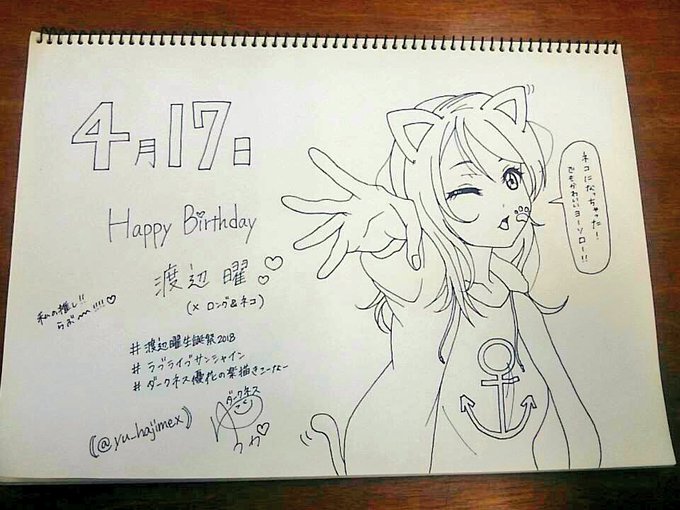 4月17日
Happy Birthday
渡辺 曜♡♡
(× ロング&ネコ)
私の推し!!
らぶ〜〜!!!!♡
#渡辺曜生誕祭2018
#ラブライブサンシャイン
#ダークネス優花の楽描きこーなー
ダークネス
うか♡
(@yu_hajimex)
ネコになっちゃった!
でもかわいいヨーソロー!!